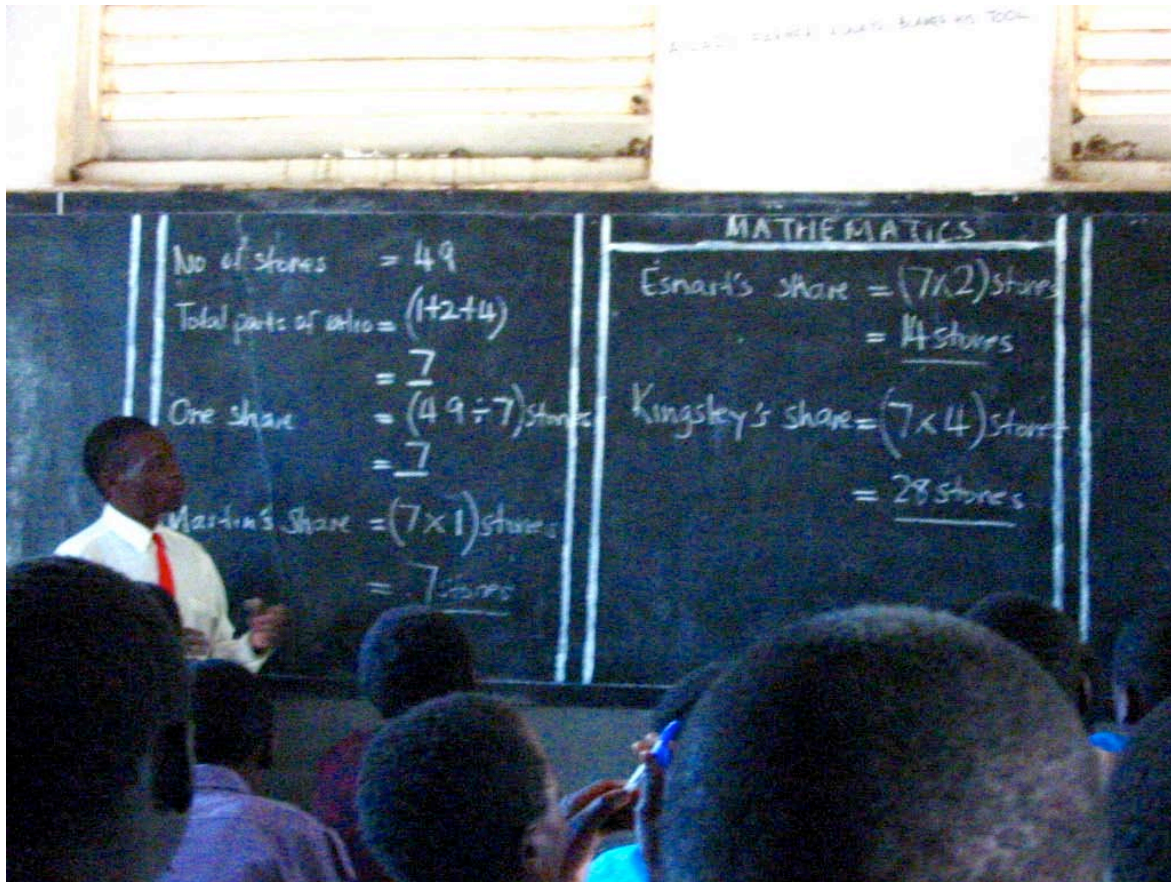 A LAZY FARMER ALWAYS BLAMES HIS TOOL
No of stones = 49
Total parts of ratio = (1+2+4)
= 7
One share = (49÷7) stones
= 7
Martin's share = (7×1) stones
= 7 stones
MATHEMATICS
Esnart's share = (7×2) stones
= 14 stones
Kingsley's share = (7×4) stones
= 28 stones